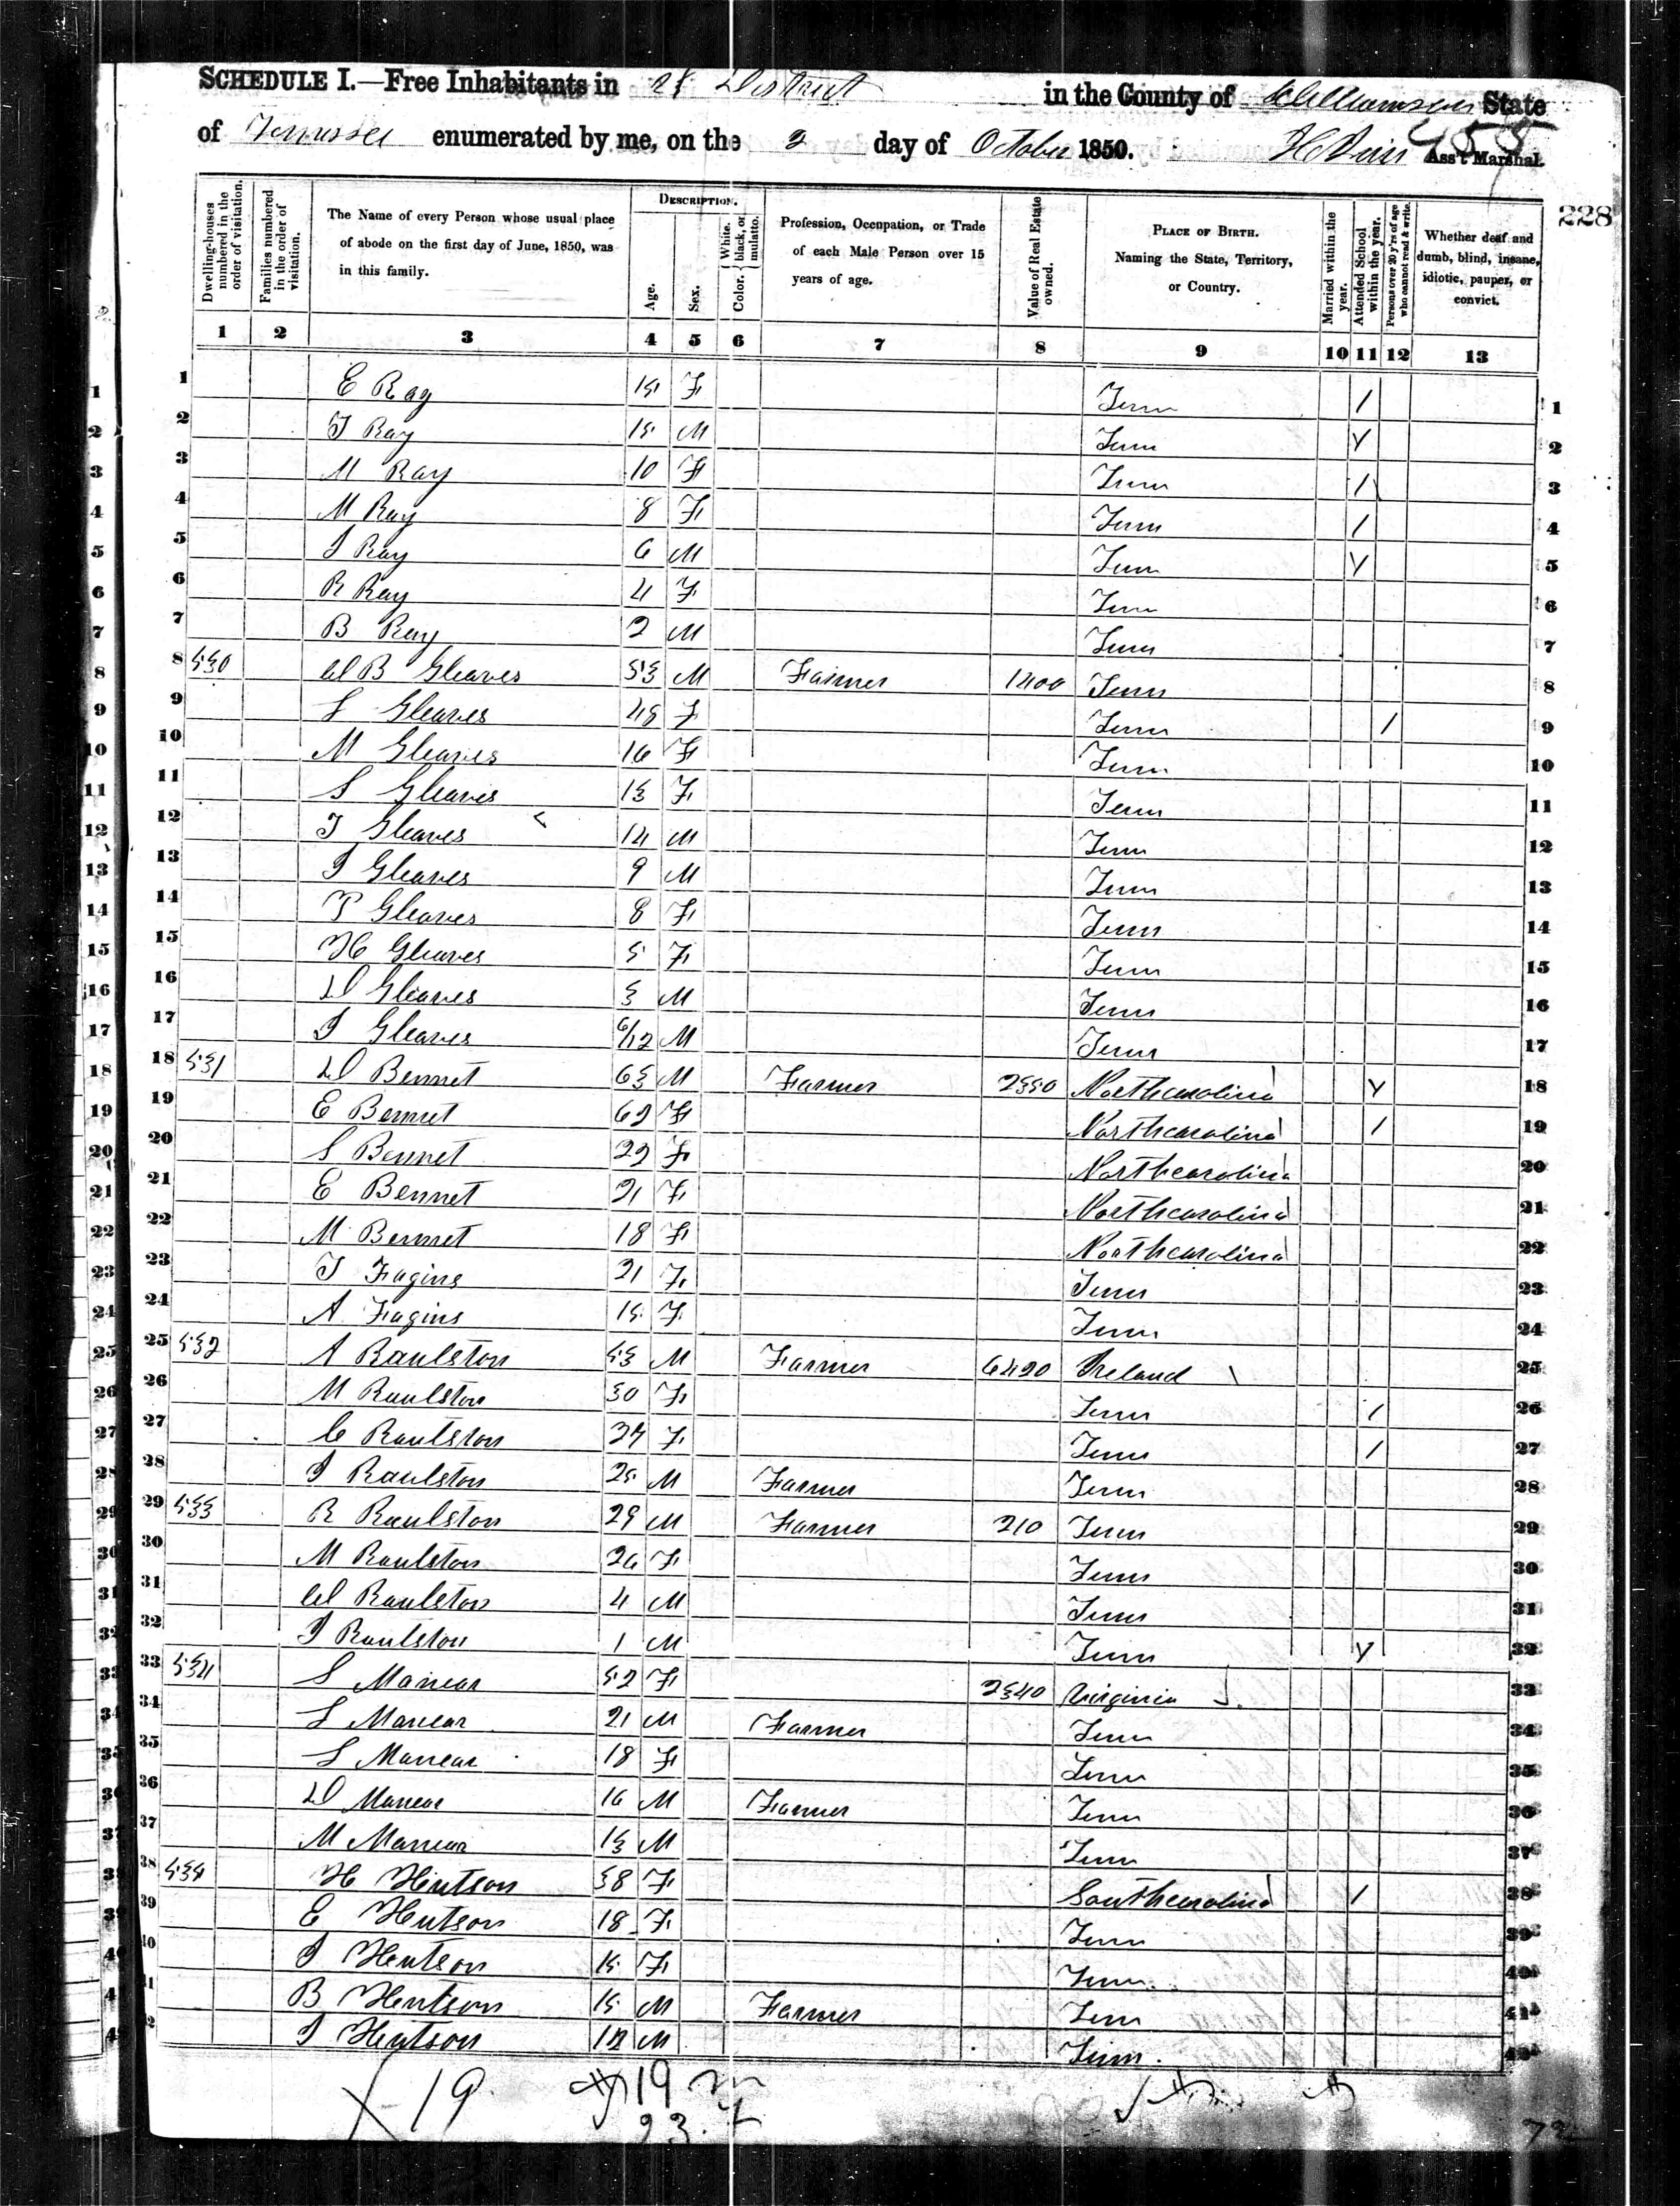 SCHEDULE I.—Free Inhabitants in District in the County of Williamson State
of Tennessee enumerated by me, on the 2 day of October 1850. Ass't Marshal.
228
Dwelling-houses numbered in the order of visitation.
Families numbered in the order of visitation.
The Name of every Person whose usual place of abode on the first day of June, 1850, was in this family.
DESCRIPTION.
Age.
Sex.
Color. White, black, or mulatto.
Profession, Occupation, or Trade of each Male Person over 15 years of age.
Value of Real Estate owned.
PLACE OF BIRTH. Naming the State, Territory, or Country.
Married within the year.
Attended School within the year.
Persons over 20 y'rs of age who cannot read & write.
Whether deaf and dumb, blind, insane, idiotic, pauper, or convict.
1 2 3 4 5 6 7 8 9 10 11 12 13
1 E Ray F Tenn / 1
2 T Ray 15 M Tenn 2
3 M Ray 10 F Tenn / 3
4 M Ray 8 F Tenn / 4
5 J Ray 6 M Tenn 5
6 R Ray 4 F Tenn 6
7 B Ray 2 M Tenn 7
8 530 W B Gleaves 53 M Farmer 1400 Tenn 8
9 S Gleaves 48 F Tenn / 9
10 M Gleaves 16 F Tenn 10
11 S Gleaves 13 F Tenn 11
12 T Gleaves 14 M Tenn 12
13 J Gleaves 9 M Tenn 13
14 P Gleaves 8 F Tenn 14
15 H Gleaves 5 F Tenn 15
16 D Gleaves 3 M Tenn 16
17 J Gleaves 6/12 M Tenn 17
18 531 D Bennet 63 M Farmer 2350 Northcarolina 18
19 E Bennet 62 F Northcarolina / 19
20 S Bennet 22 F Northcarolina 20
21 E Bennet 21 F Northcarolina 21
22 M Bennet 18 F Northcarolina 22
23 T Fagins 21 F Tenn 23
24 A Fagins 15 F Tenn 24
25 532 A Raulston 53 M Farmer 6420 Ireland 25
26 M Raulston 50 F Tenn / 26
27 C Raulston 27 F Tenn / 27
28 J Raulston 25 M Farmer Tenn 28
29 533 R Raulston 29 M Farmer 210 Tenn 29
30 M Raulston 26 F Tenn 30
31 W Raulston 4 M Tenn 31
32 J Raulston 1 M Tenn 32
33 534 S Manear 52 F 2340 Virginia 33
34 S Manear 21 M Farmer Tenn 34
35 S Manear 18 F Tenn 35
36 D Manear 16 M Farmer Tenn 36
37 M Manear 13 M Tenn 37
38 H Hutson 38 F Southcarolina / 38
39 E Hutson 18 F Tenn 39
40 J Hutson 15 F Tenn 40
41 B Hutson 15 M Farmer Tenn 41
42 J Hutson 12 M Tenn 42
19 19 m
23 f